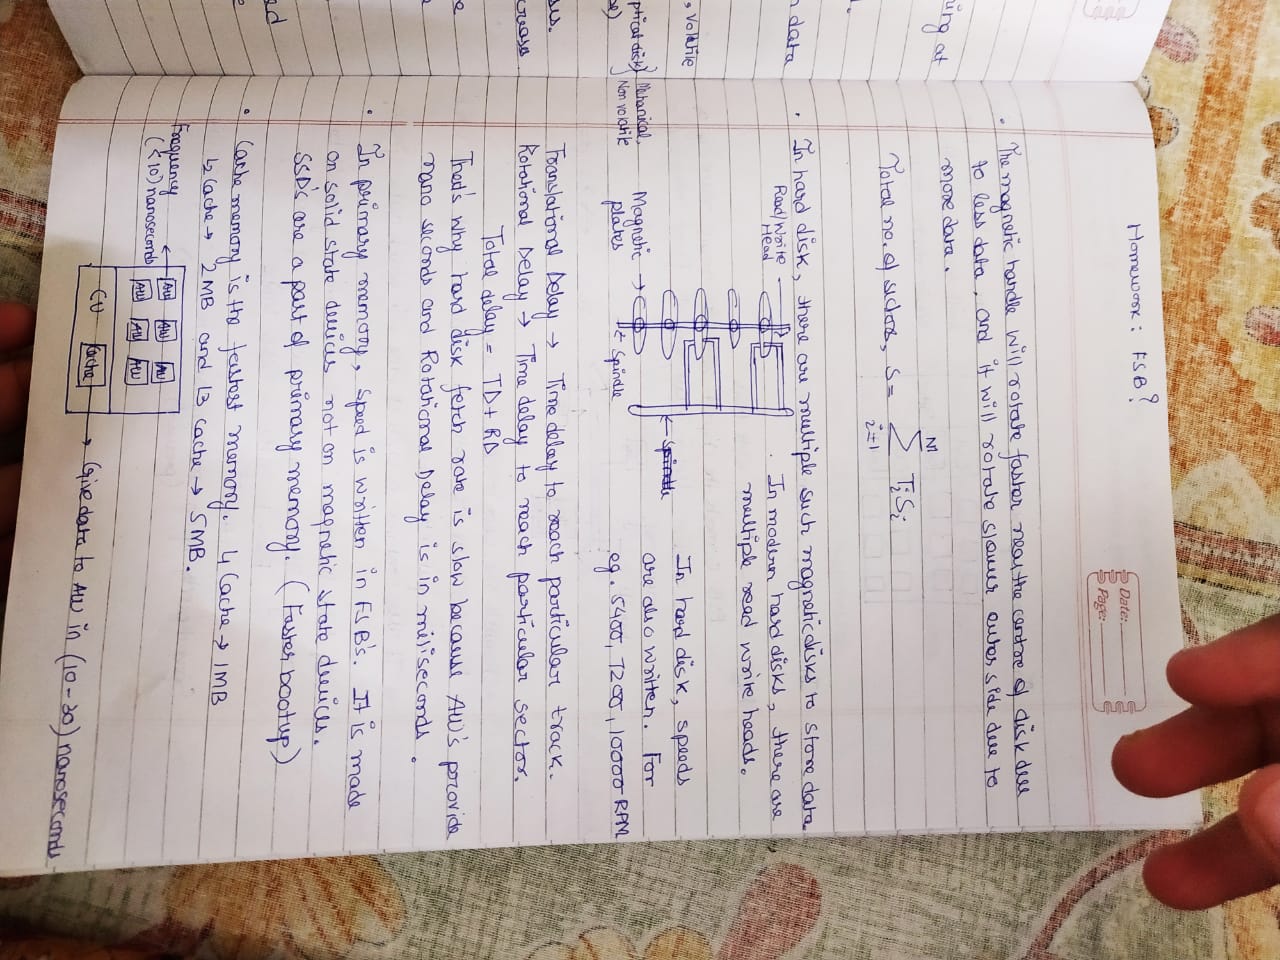 Date:
Page:
Homework: FSB?
• The magnetic handle will rotate faster near the centre of disk due
to less data, and it will rotate slower outer side due to
more data.
Total no. of sectors, S = N Σ i=1 TiSi
• In hard disk, there are multiple such magnetic disks to store data.
Read/Write
Head
• In modern hard disks, there are
multiple read write heads.
Magnetic →
plates
↑ Spindle
In hard disk, speeds
are also written. For
eg. 5400, 7200, 10000 RPM
Translational Delay → Time delay to reach particular track.
Rotational Delay → Time delay to reach particular sector.
Total delay = TD + RD
That's why hard disk fetch rate is slow because AU's provide
nano seconds and Rotational Delay is in miliseconds.
• In primary memory, speed is written in FSB's. It is made
on solid state devices not on magnetic state devices.
SSD's are a part of primary memory. (Faster bootup)
• Cache memory is the fastest memory. L1 Cache → 1MB
L2 Cache → 2MB and L3 Cache → 5MB.
Frequency
(<10) nanoseconds
AU AU AU
AU AU AU
CU Cache
→ Give data to AU in (10-20) nanoseconds
, Volatile
ptical disk} Mechanical,
Non volatile
n data
ning at
sus.
crease
ed